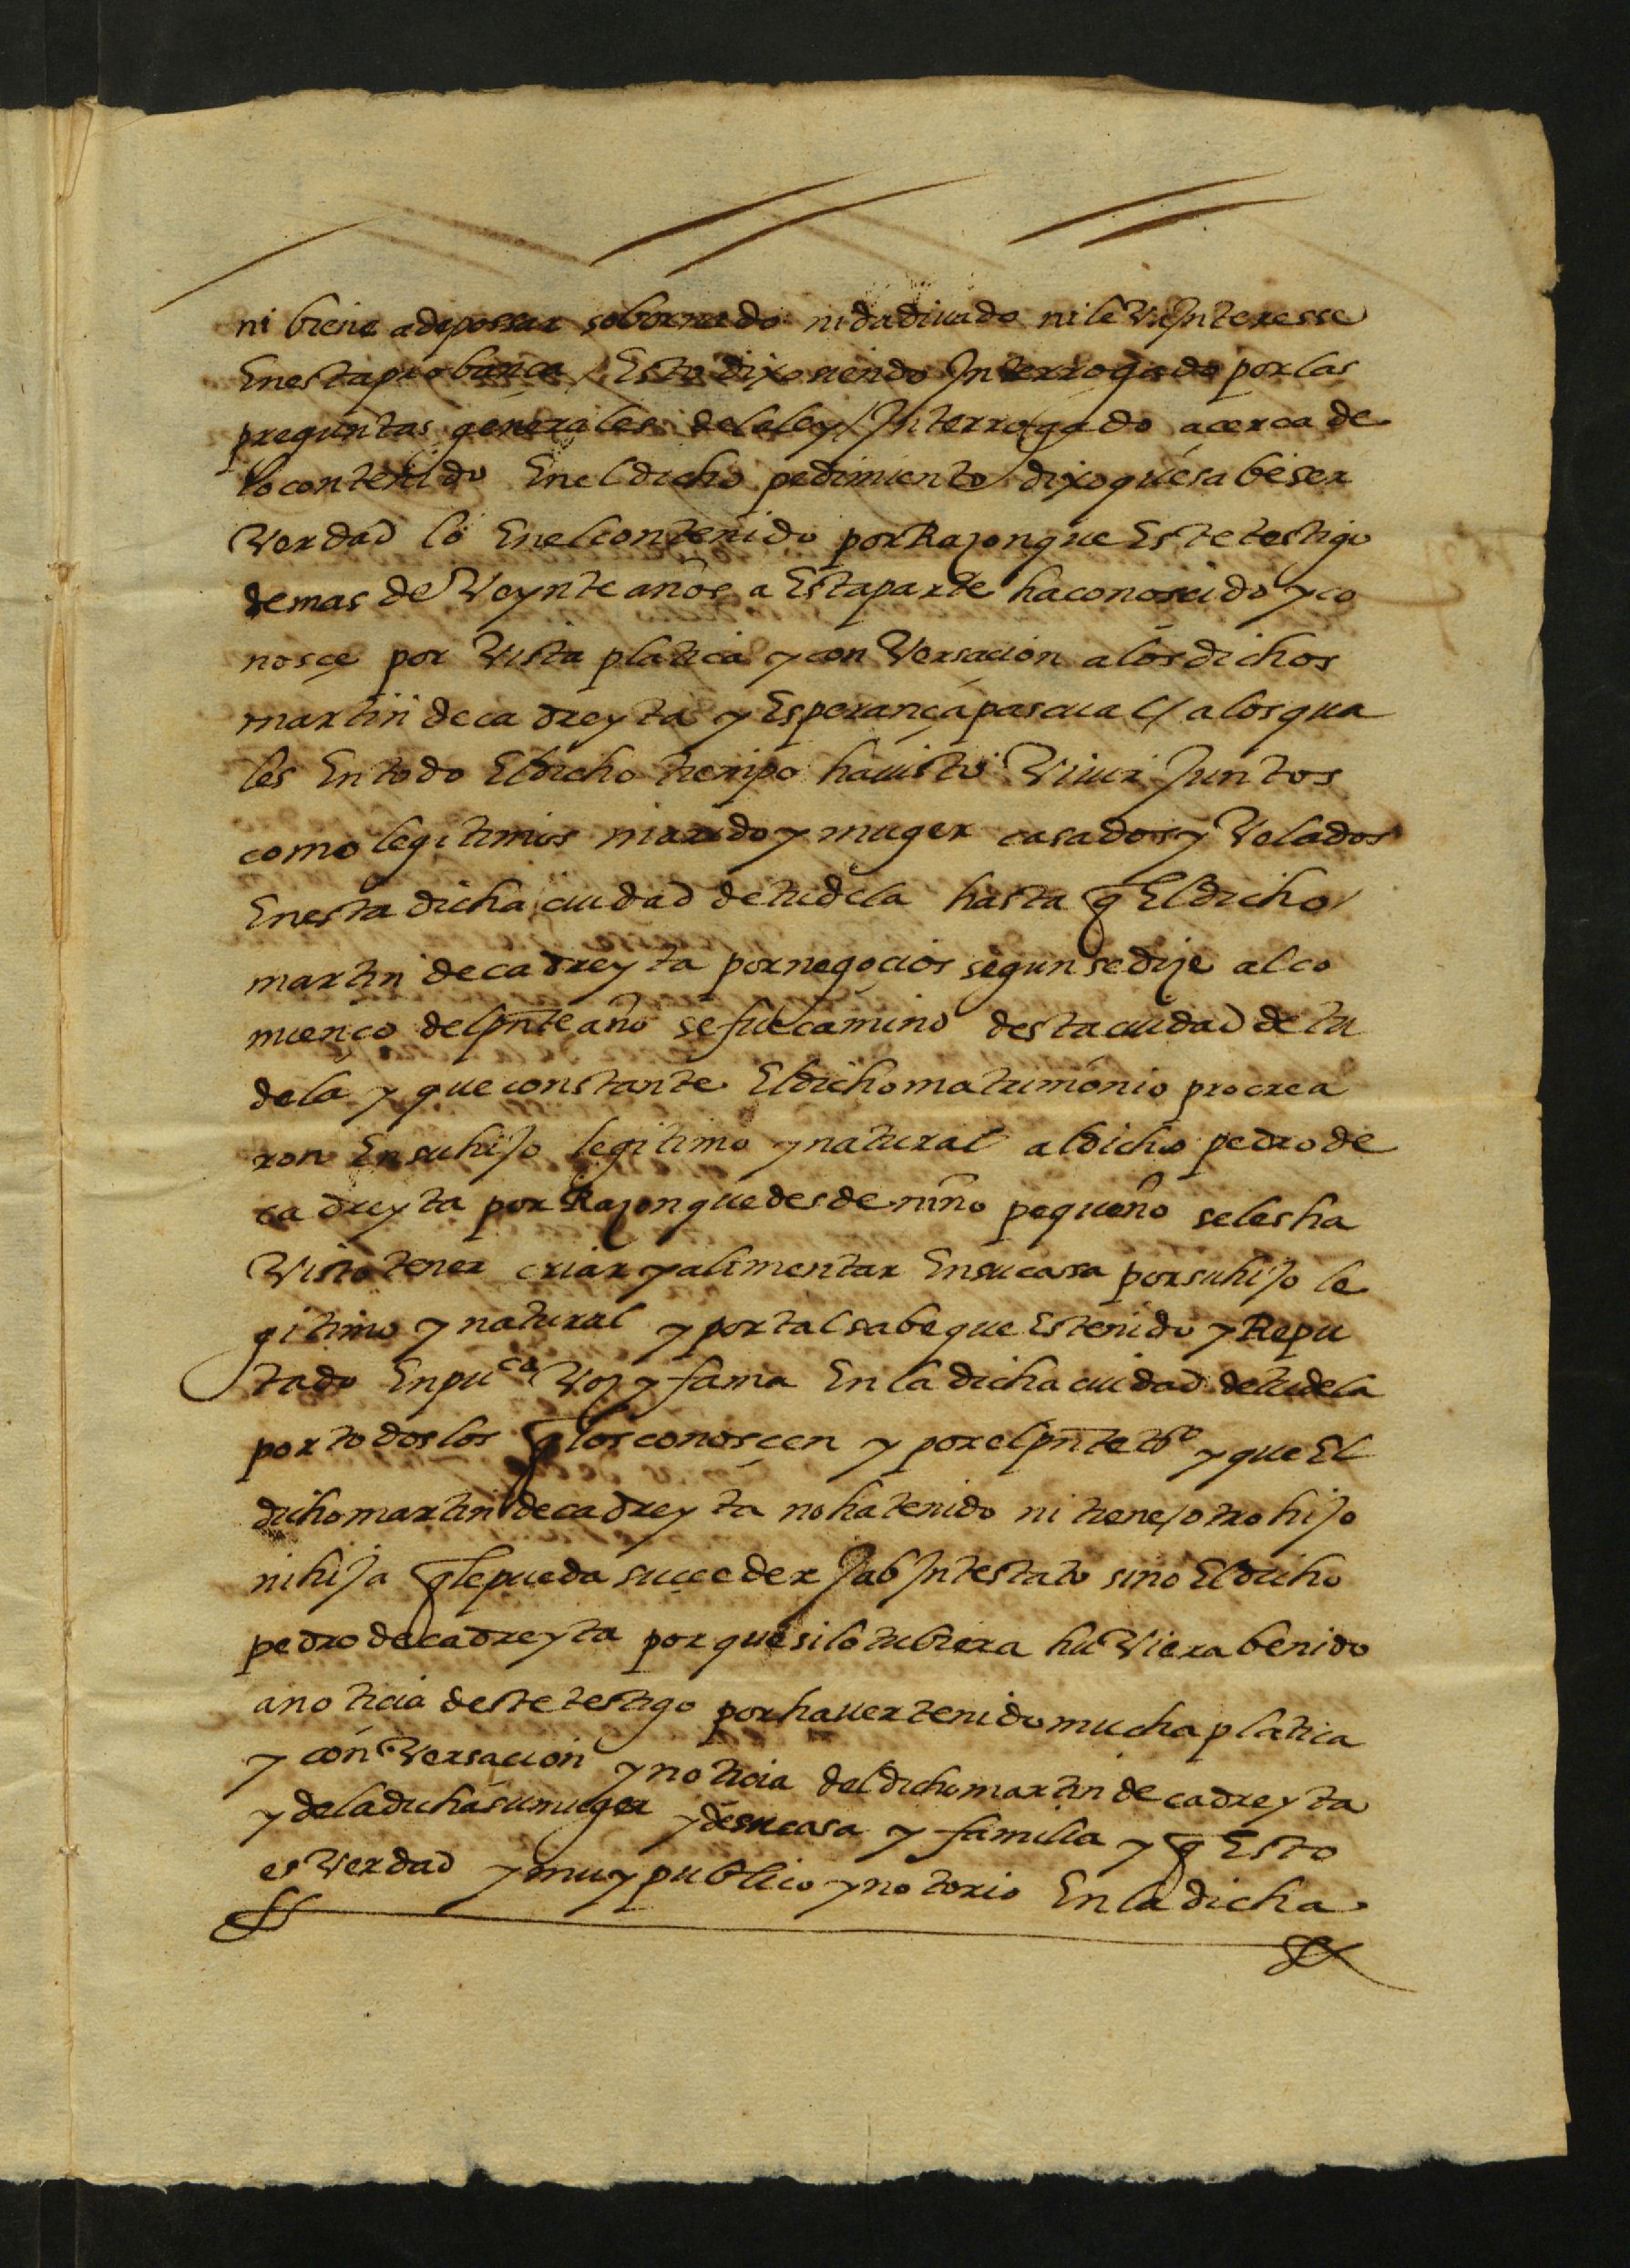 ni biene a depossar sobornado ni dadiuado ni le va Interesse
En esta probança / Esto dixo siendo Interrogado por las
preguntas generales de la ley / Interrogado acerca de
lo contenido En el dicho pedimiento / dixo que sabe ser
Verdad lo En el contenido por Razon que Este testigo
de mas de Veynte años a Esta parte ha conoscido y co
nosçe por Vista platica y conVersacion a los dichos
martin de cadreyta y Esperança pascual / a los qua
les En todo El dicho tiempo ha uisto Viuir Juntos
como legitimos marido y muger casados y Velados
En esta dicha ciudad de tudela hasta q̃ El dicho
martin de cadreyta por negoçios segun se dize al co
mienço del pñte año se fue camino desta ciudad de tu
dela y que constante El dicho matrimonio procrea
ron En su hijo legitimo y natural al dicho pedro de
cadreyta por Razon que desde niño pequeño se les ha
Visto tener criar y alimentar En su casa por su hijo le
gitimo y natural y por tal sabe que Es tenido y Repu
tado En puca Voz y fama En la dicha ciudad de tudela
por todos los q̃ los conosçen y por el pñte to y que El
dicho martin de cadreyta no ha tenido ni tiene / otro hijo
ni hija q̃ le pueda suçceder / ab Intestato sino El dicho
pedro de cadreyta por que si lo tubiera huViera benido
a noticia deste testigo por hauer tenido mucha platica
y conVersacion y noticia del dicho martin de cadreyta
y de la dicha su muger y de su casa y familia y q̃ Esto
es Verdad y muy publico y notorio En la dicha